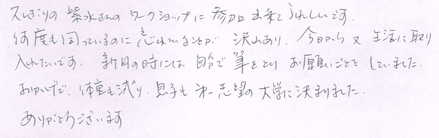 久しぶりの 紫水さんの ワークショップに 参加出来てうれしいです。
何度も伺っているのに 忘れていることが 沢山あり、今日から又 生活に取り
入れたいです。新月の時には 自分で 筆をとり お願いごとを していました。
おかげで、体重も減り、息子も 第一志望の 大学に決まりました。
ありがとうございます